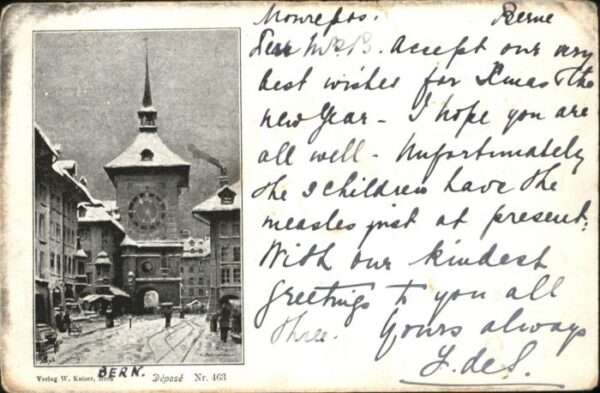 Monrepos. Berne
Dear Mrs B. Accept our very
best wishes for Xmas & the
new Year - I hope you are
all well - Unfortunately
the 2 children have the
measles just at present.
With our kindest
greetings to you all
three. Yours always
L. de S.
BERN.
Verlag W. Kaiser, Bern Déposé Nr. 463